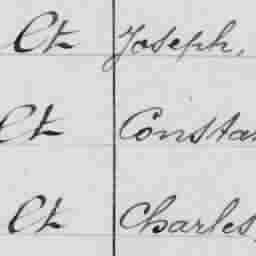 Ct Joseph,
Ct Constan
Ct Charles,